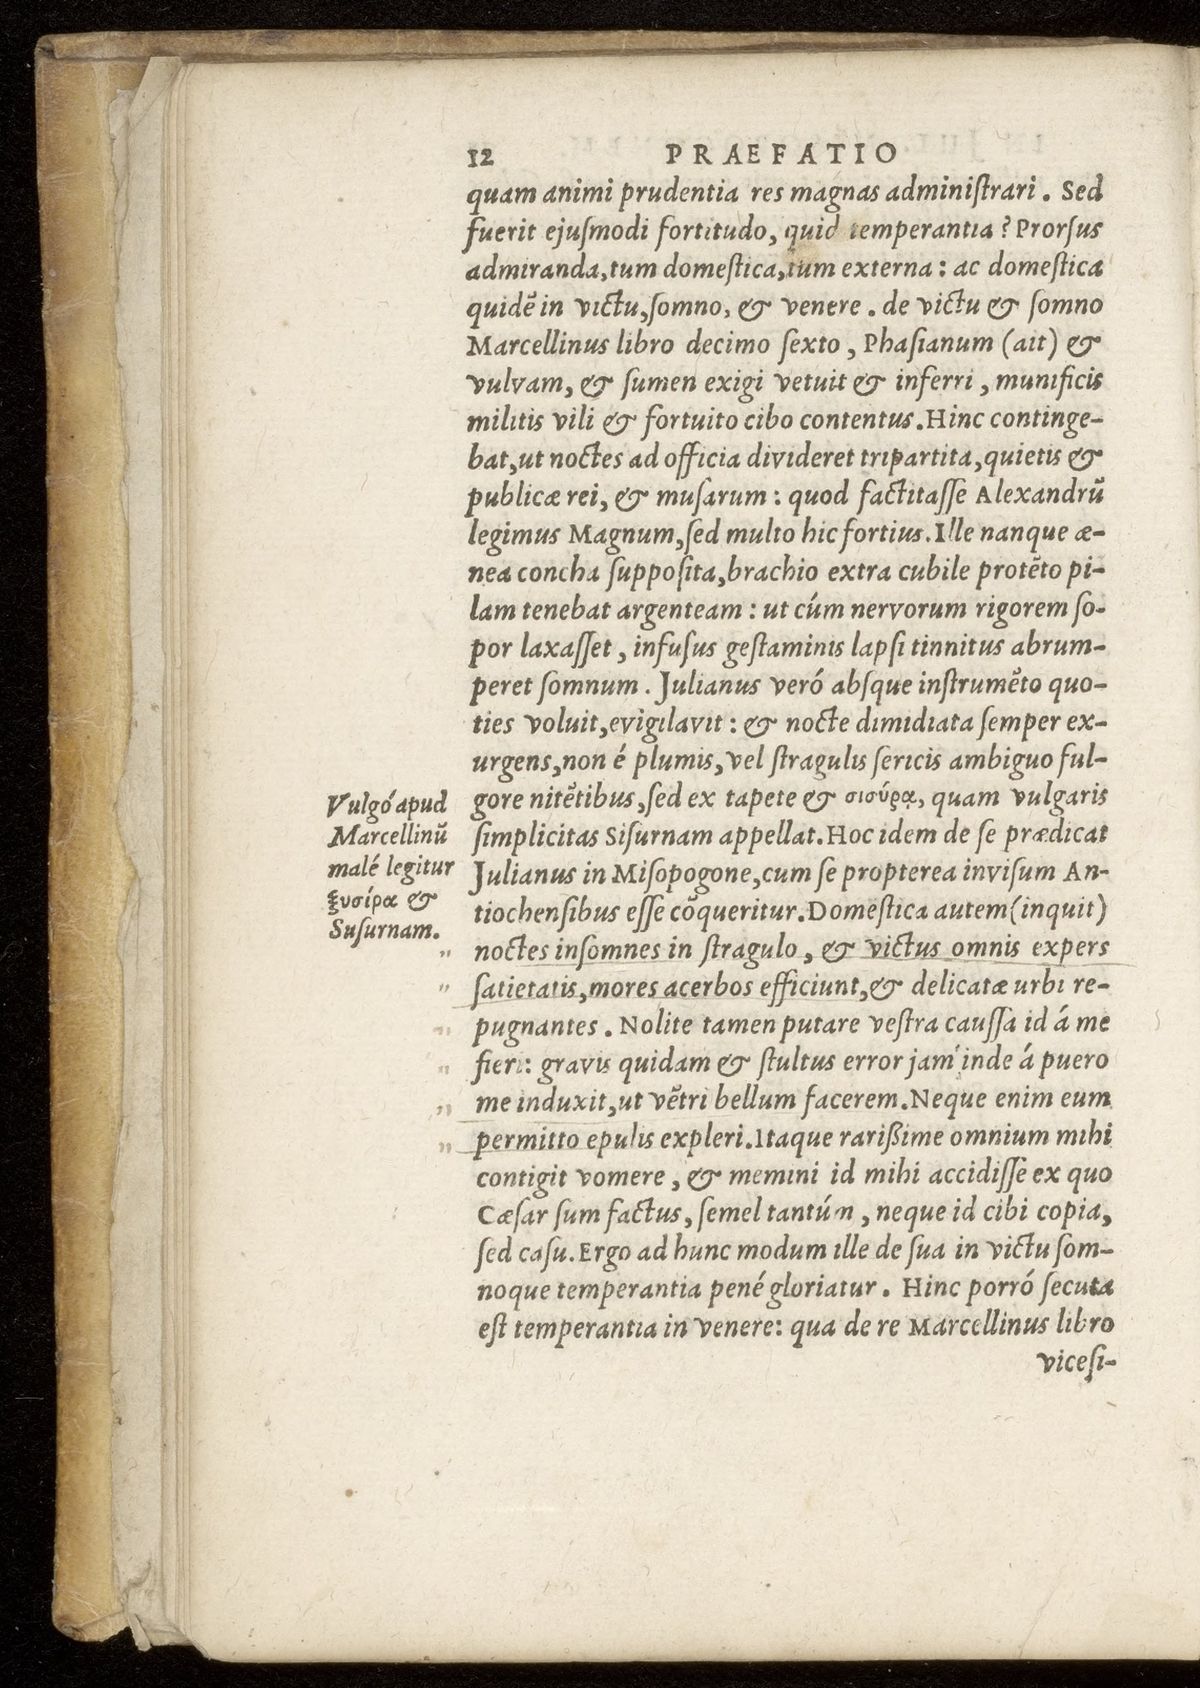 12 PRAEFATIO
quam animi prudentia res magnas adminiſtrari. Sed
fuerit ejuſmodi fortitudo, quid temperantia? Prorſus
admiranda, tum domeſtica, tum externa: ac domeſtica
quidē in victu, ſomno, & venere. de victu & ſomno
Marcellinus libro decimo ſexto, Phaſianum (ait) &
vulvam, & ſumen exigi vetuit & inferri, munificis
militis vili & fortuito cibo contentus. Hinc continge-
bat, ut noctes ad officia divideret tripartita, quietis &
publicæ rei, & muſarum: quod factitaſſe Alexandrū
legimus Magnum, ſed multo hic fortius. Ille nanque æ-
nea concha ſuppoſita, brachio extra cubile protēto pi-
lam tenebat argenteam: ut cúm nervorum rigorem ſo-
por laxaſſet, infuſus geſtaminis lapſi tinnitus abrum-
peret ſomnum. Julianus veró abſque inſtrumēto quo-
ties voluit, evigilavit: & nocte dimidiata ſemper ex-
urgens, non é plumis, vel ſtragulis ſericis ambiguo ful-
gore nitētibus, ſed ex tapete & σισύρᾳ, quam vulgaris
ſimplicitas Siſurnam appellat. Hoc idem de ſe prædicat
Julianus in Miſopogone, cum ſe propterea inviſum An-
tiochenſibus eſſe cōqueritur. Domeſtica autem (inquit)
„ noctes inſomnes in ſtragulo, & victus omnis expers
„ ſatietatis, mores acerbos efficiunt, & delicatæ urbi re-
„ pugnantes. Nolite tamen putare veſtra cauſſa id á me
„ fieri: gravis quidam & ſtultus error jam inde á puero
„ me induxit, ut vētri bellum facerem. Neque enim eum
„ permitto epulis expleri. Itaque rarißime omnium mihi
contigit vomere, & memini id mihi accidiſſe ex quo
Cæſar ſum factus, ſemel tantúm, neque id cibi copia,
ſed caſu. Ergo ad hunc modum ille de ſua in victu ſom-
noque temperantia pené gloriatur. Hinc porró ſecuta
eſt temperantia in venere: qua de re Marcellinus libro
viceſi-
Vulgó apud
Marcellinū
malé legitur
ξυσίρα &
Suſurnam.